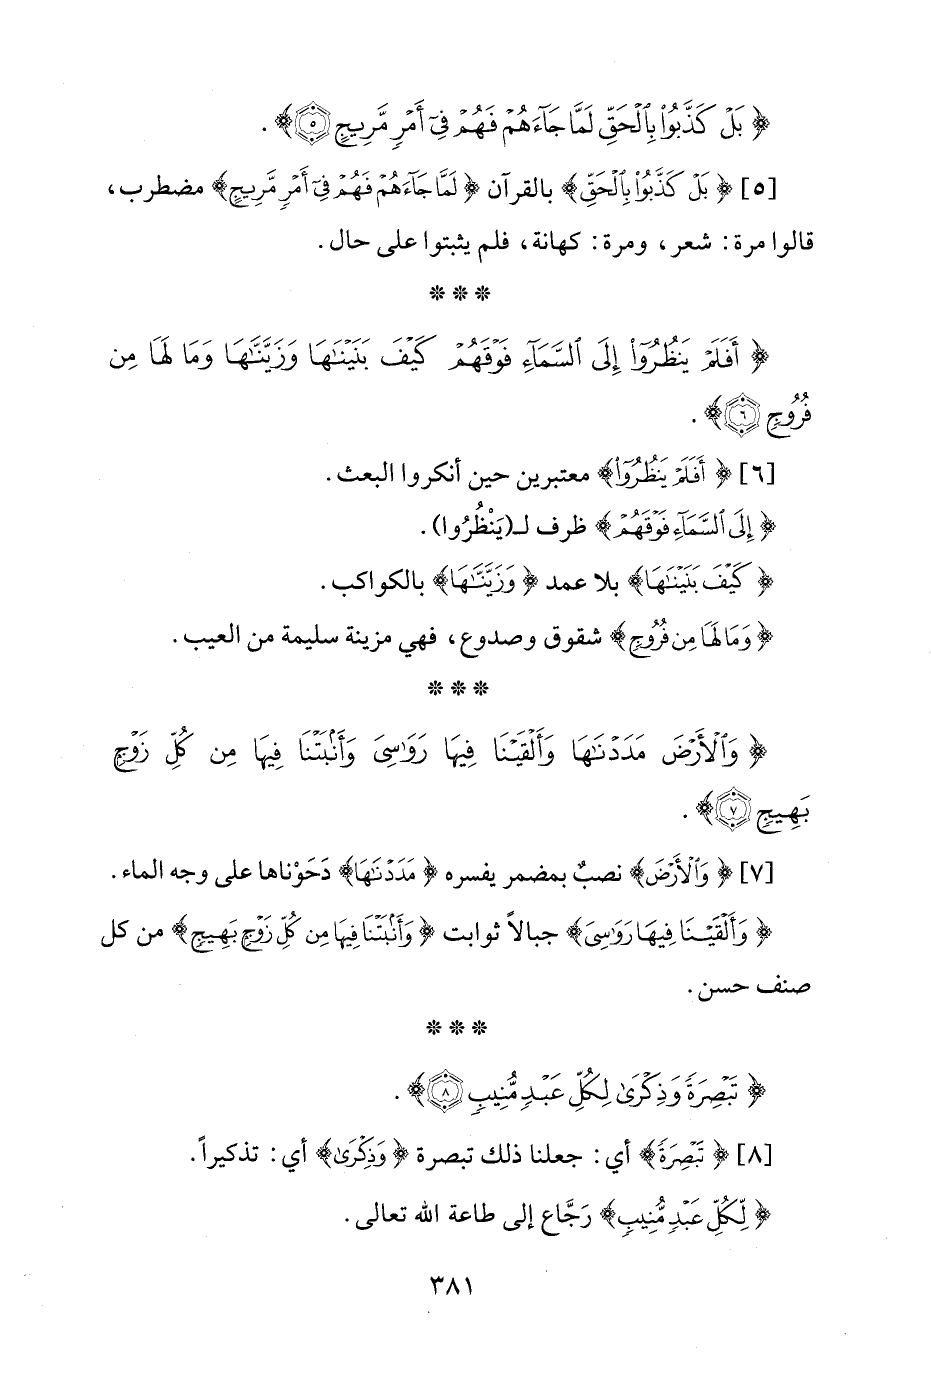 ﴿ بَلْ كَذَّبُوا۟ بِٱلْحَقِّ لَمَّا جَآءَهُمْ فَهُمْ فِىٓ أَمْرٍ مَّرِيجٍ ٥ ﴾ .
[٥] ﴿ بَلْ كَذَّبُوا۟ بِٱلْحَقِّ ﴾ بالقرآن ﴿ لَمَّا جَآءَهُمْ فَهُمْ فِىٓ أَمْرٍ مَّرِيجٍ ﴾ مضطرب ،
قالوا مرة : شعر ، ومرة : كهانة ، فلم يثبتوا على حال .
* * *
﴿ أَفَلَمْ يَنظُرُوٓا۟ إِلَى ٱلسَّمَآءِ فَوْقَهُمْ كَيْفَ بَنَيْنَٰهَا وَزَيَّنَّٰهَا وَمَا لَهَا مِن
فُرُوجٍ ٦ ﴾ .
[٦] ﴿ أَفَلَمْ يَنظُرُوٓا۟ ﴾ معتبرين حين أنكروا البعث .
﴿ إِلَى ٱلسَّمَآءِ فَوْقَهُمْ ﴾ ظرف لـ(يَنْظُرُوا) .
﴿ كَيْفَ بَنَيْنَٰهَا ﴾ بلا عمد ﴿ وَزَيَّنَّٰهَا ﴾ بالكواكب .
﴿ وَمَا لَهَا مِن فُرُوجٍ ﴾ شقوق وصدوع ، فهي مزينة سليمة من العيب .
* * *
﴿ وَٱلْأَرْضَ مَدَدْنَٰهَا وَأَلْقَيْنَا فِيهَا رَوَٰسِىَ وَأَنۢبَتْنَا فِيهَا مِن كُلِّ زَوْجٍۭ
بَهِيجٍ ٧ ﴾ .
[٧] ﴿ وَٱلْأَرْضَ ﴾ نصبٌ بمضمر يفسره ﴿ مَدَدْنَٰهَا ﴾ دَحَوْناها على وجه الماء .
﴿ وَأَلْقَيْنَا فِيهَا رَوَٰسِىَ ﴾ جبالاً ثوابت ﴿ وَأَنۢبَتْنَا فِيهَا مِن كُلِّ زَوْجٍۭ بَهِيجٍ ﴾ من كل
صنف حسن .
* * *
﴿ تَبْصِرَةً وَذِكْرَىٰ لِكُلِّ عَبْدٍ مُّنِيبٍ ٨ ﴾ .
[٨] ﴿ تَبْصِرَةً ﴾ أي : جعلنا ذلك تبصرة ﴿ وَذِكْرَىٰ ﴾ أي : تذكيراً .
﴿ لِكُلِّ عَبْدٍ مُّنِيبٍ ﴾ رَجَّاع إلى طاعة الله تعالى .
٣٨١